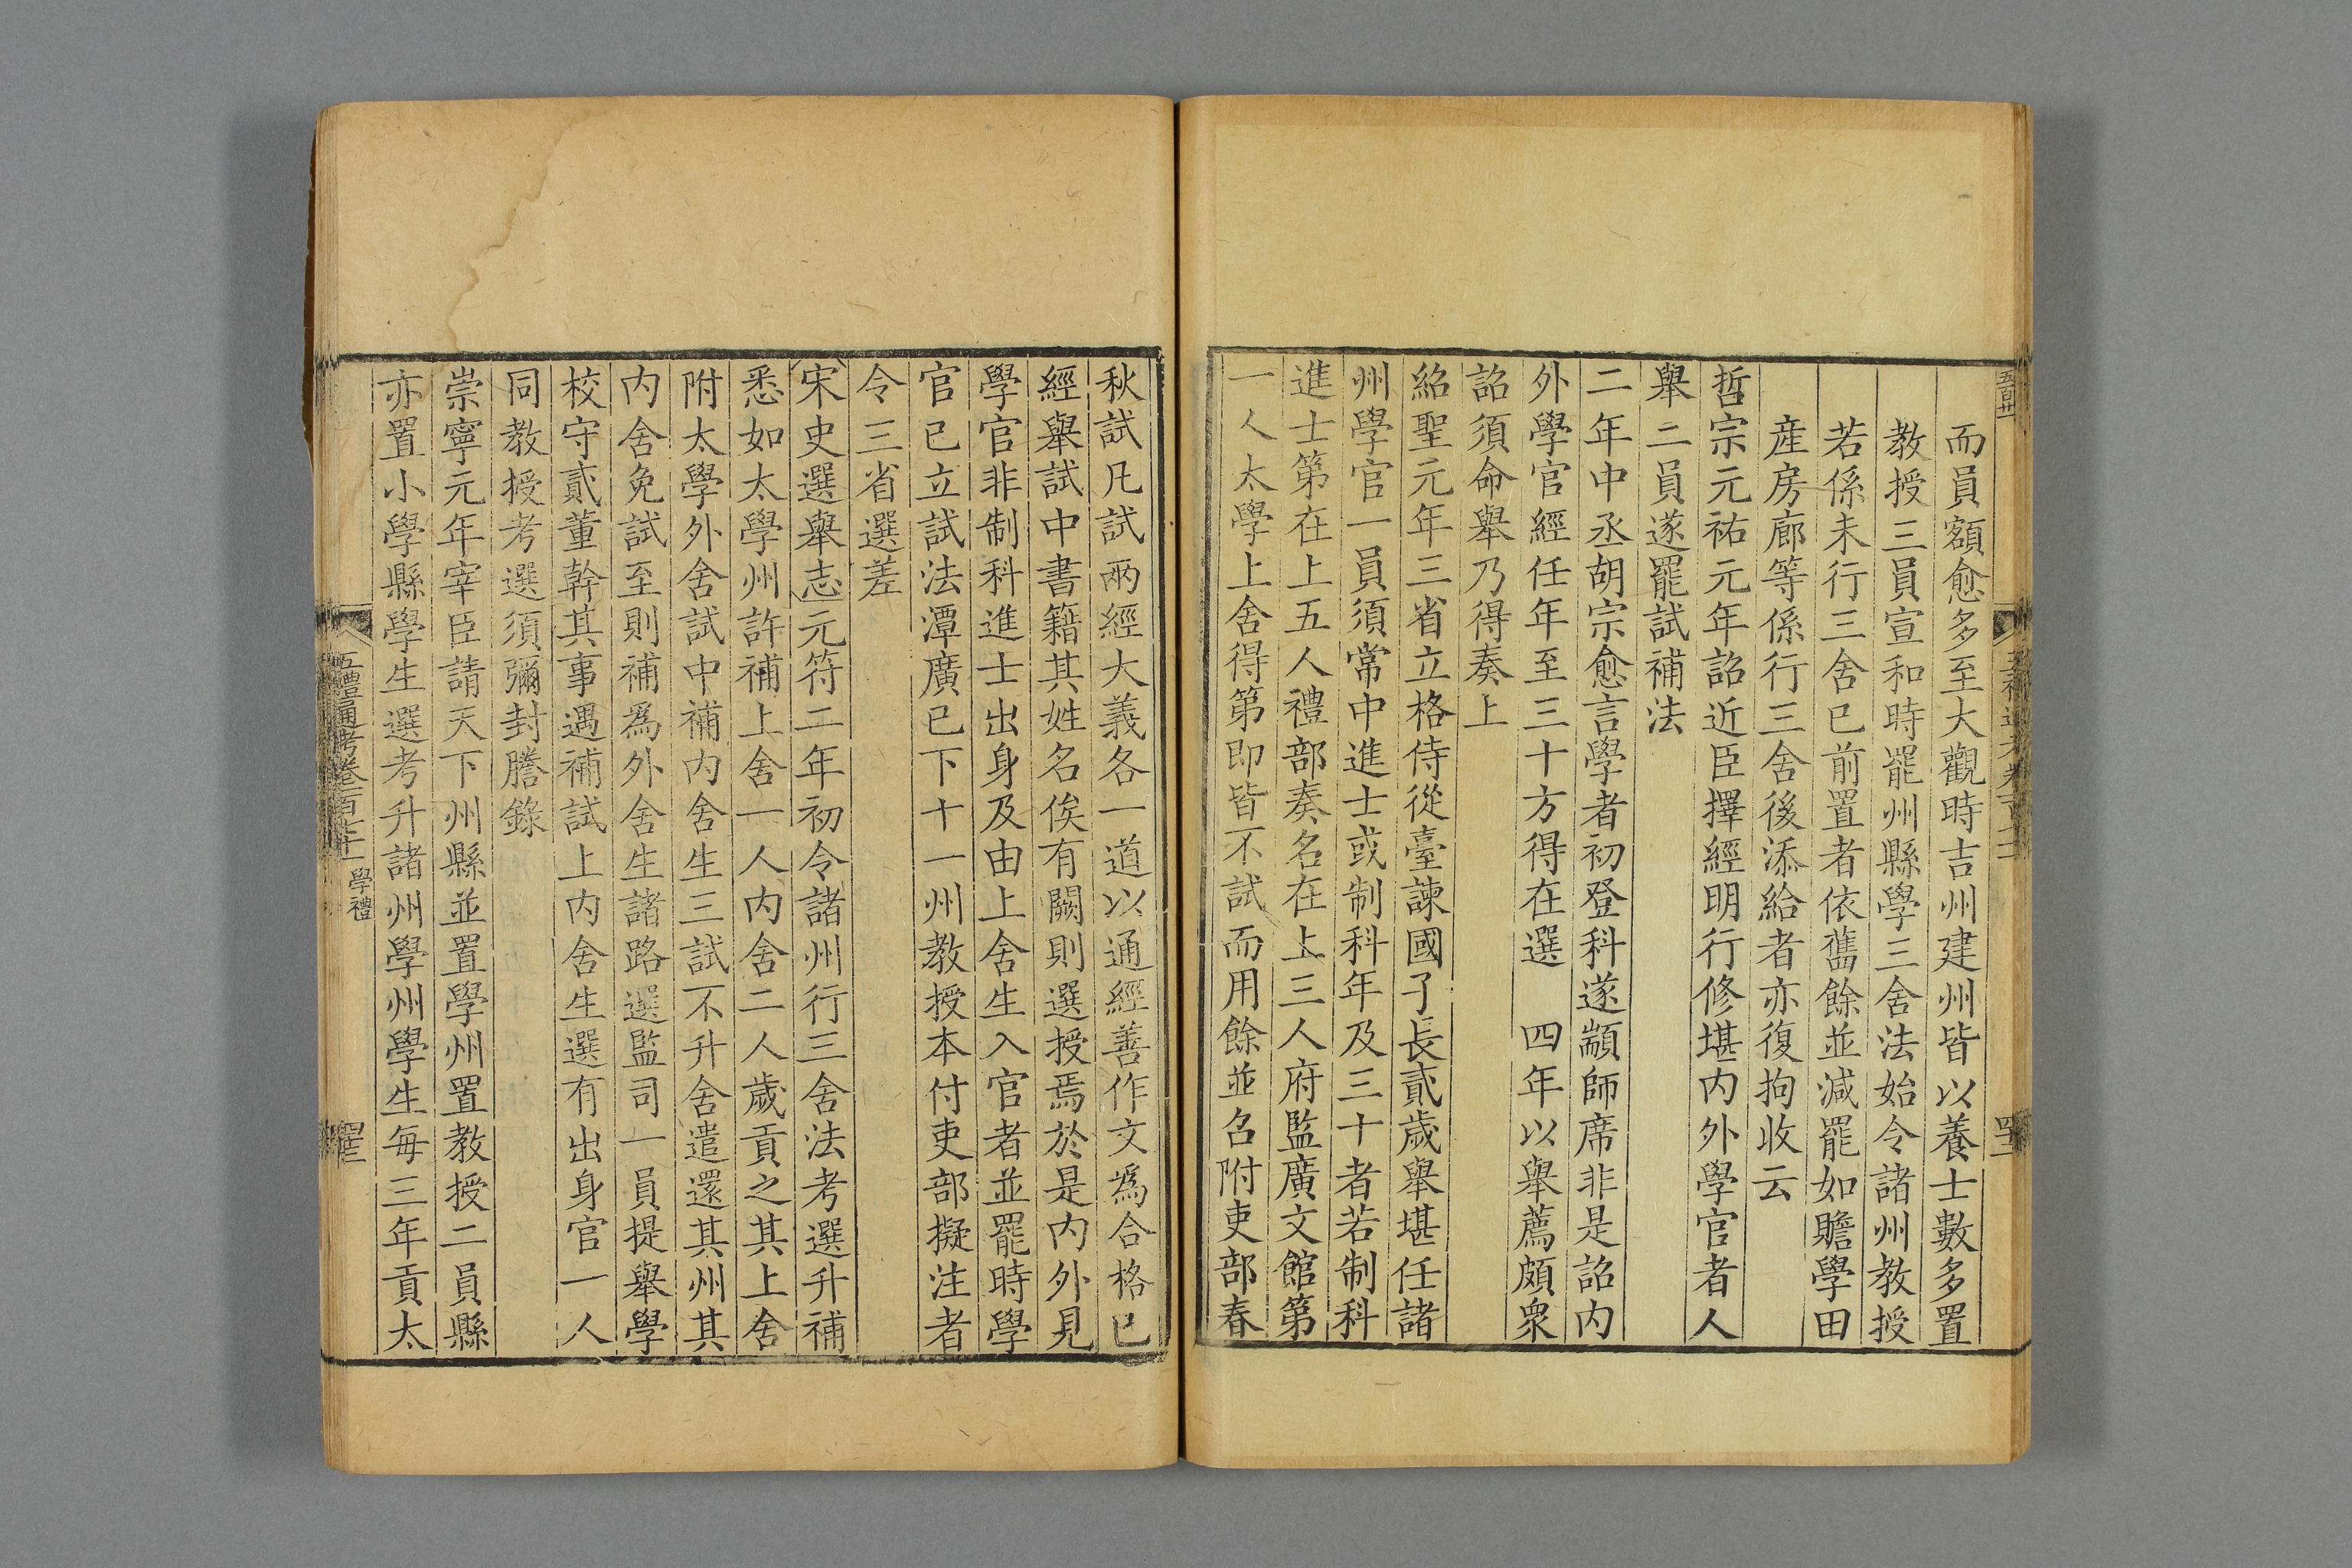 而員額愈多至大觀時吉州建州皆以養士數多置
教授三員宣和時罷州縣學三舍法始令諸州教授
若係未行三舍已前置者依舊餘並減罷如贍學田
産房廊等係行三舍後添給者亦復拘收云
哲宗元祐元年詔近臣擇經明行修堪内外學官者人
舉二員遂罷試補法
二年中丞胡宗愈言學者初登科遂顓師席非是詔内
外學官經任年至三十方得在選　四年以舉薦頗衆
詔須命舉乃得奏上
紹聖元年三省立格侍從臺諫國子長貳歲舉堪任諸
州學官一員須常中進士或制科年及三十者若制科
進士第在上五人禮部奏名在上三人府監廣文館第
一人太學上舍得第即皆不試而用餘並召附吏部春
秋試凡試兩經大義各一道以通經善作文爲合格已
經舉試中書籍其姓名俟有闕則選授焉於是内外見
學官非制科進士出身及由上舍生入官者並罷時學
官已立試法潭廣已下十一州教授本付吏部擬注者
令三省選差
宋史選舉志元符二年初令諸州行三舍法考選升補
悉如太學州許補上舍一人内舍二人歲貢之其上舍
附太學外舍試中補内舍生三試不升舍遣還其州其
内舍免試至則補爲外舍生諸路選監司一員提舉學
校守貳董幹其事遇補試上内舍生選有出身官一人
同教授考選須彌封謄錄
崇寧元年宰臣請天下州縣並置學州置教授二員縣
亦置小學縣學生選考升諸州學州學生每三年貢太
五禮通考卷一百七十一 學禮